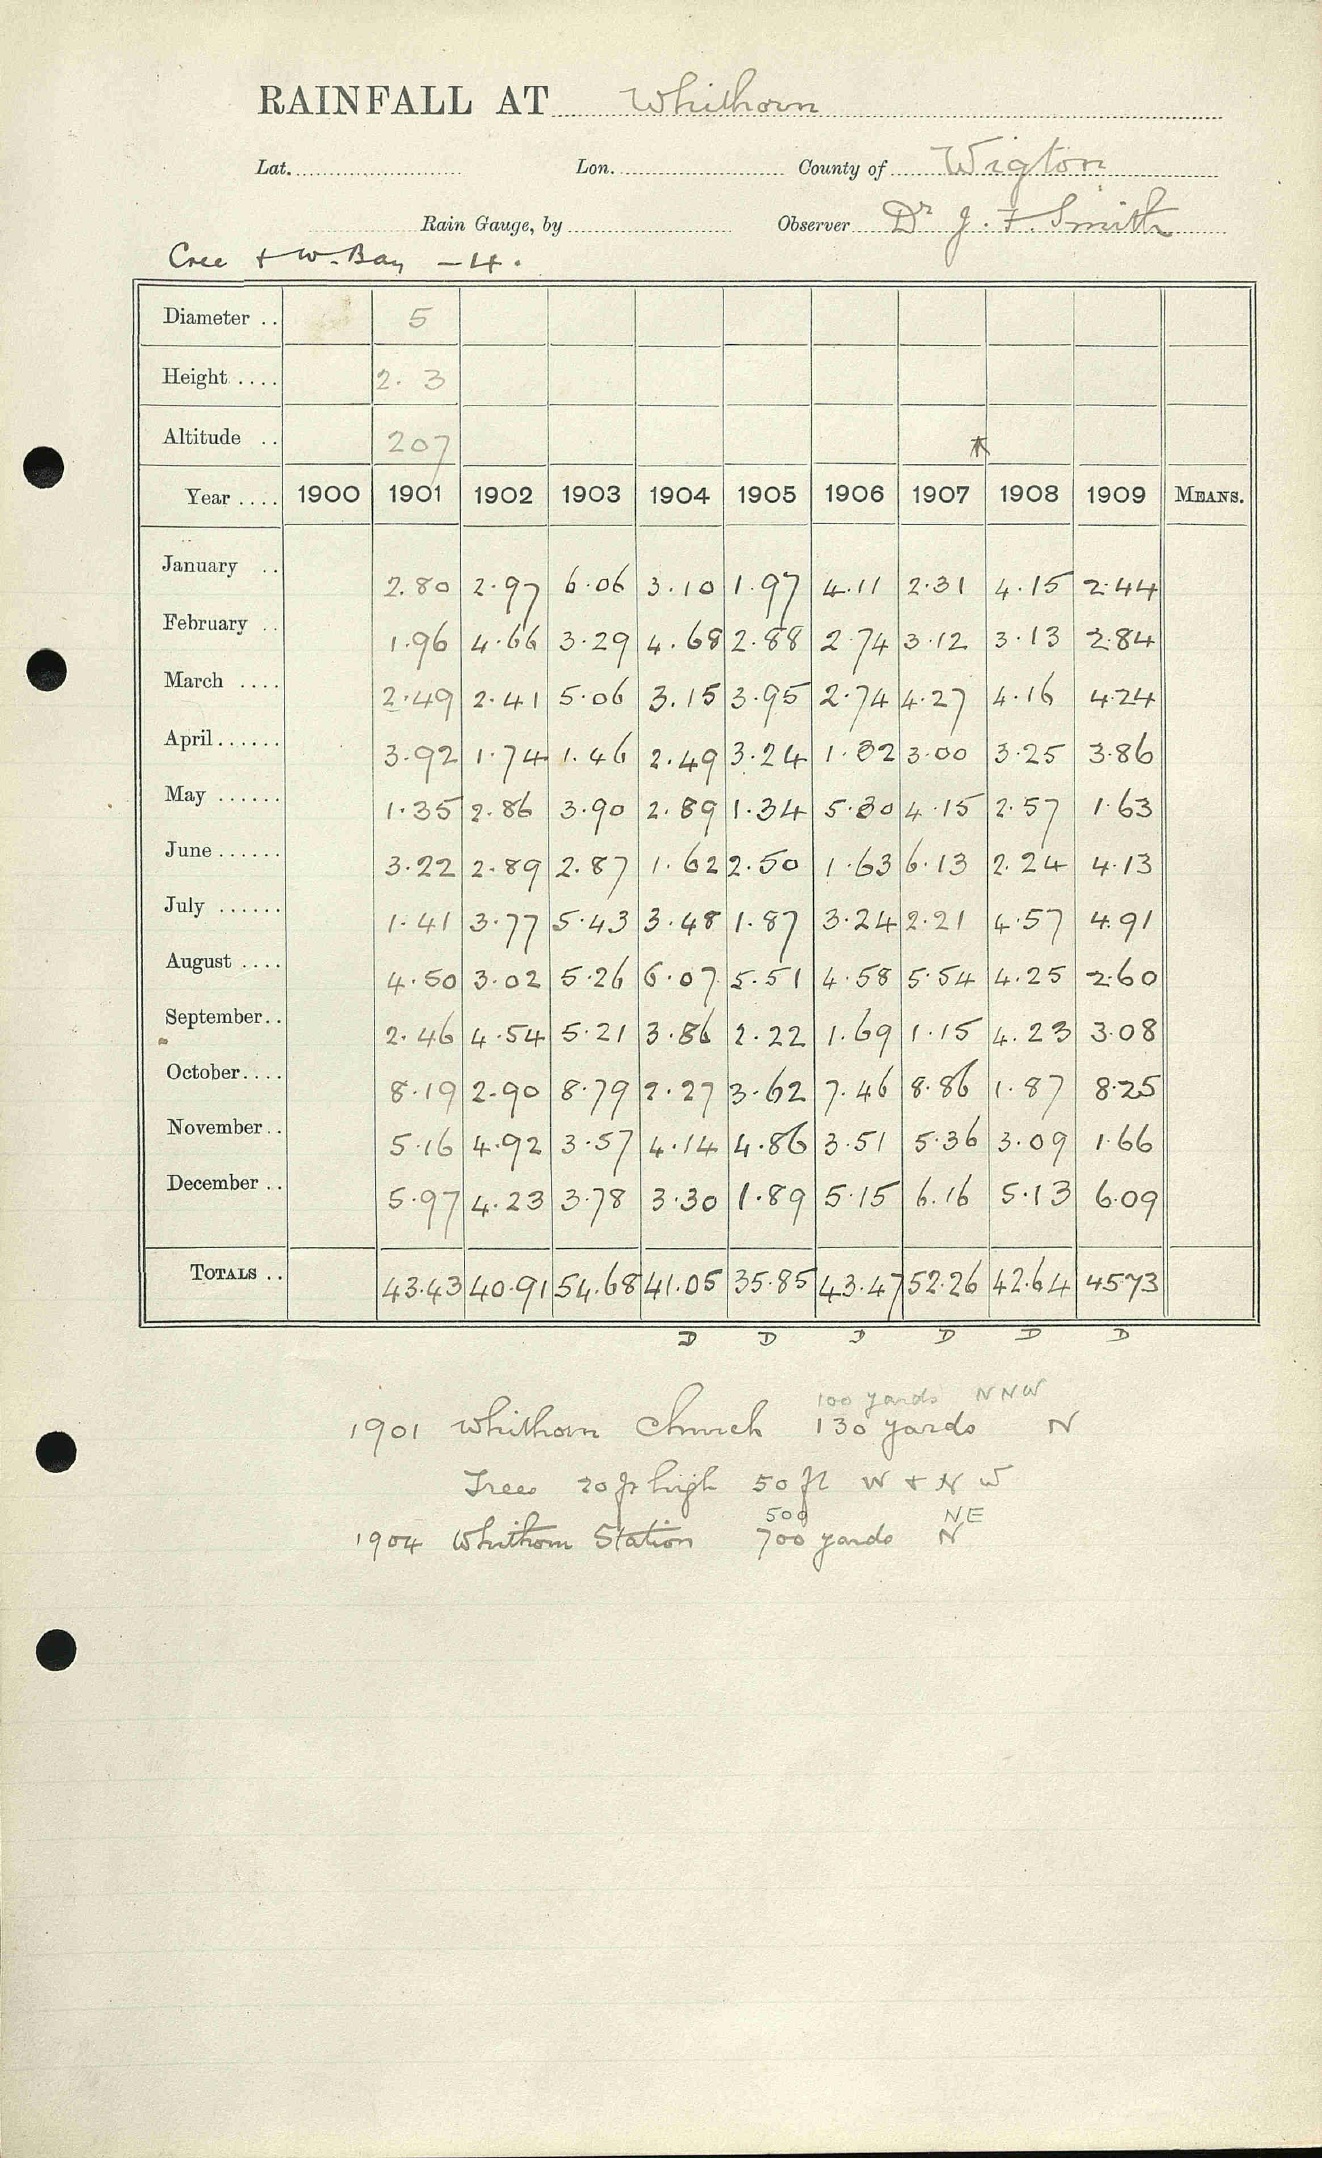 RAINFALL AT Whithorn
Lat. Lon. County of Wigton
Rain Gauge, by Observer Dr J. F. Smith
Cree + W. Bay - 4.
Diameter .. 5
Height .... 2. 3
Altitude .. 207
Year .... 1900 1901 1902 1903 1904 1905 1906 1907 1908 1909 MEANS.
January .. 2.80 2.97 6.06 3.10 1.97 4.11 2.31 4.15 2.44
February .. 1.96 4.66 3.29 4.68 2.88 2.74 3.12 3.13 2.84
March .... 2.49 2.41 5.06 3.15 3.95 2.74 4.27 4.16 4.24
April ...... 3.92 1.74 1.46 2.49 3.24 1.82 3.00 3.25 3.86
May ...... 1.35 2.86 3.90 2.89 1.34 5.80 4.15 2.57 1.63
June ...... 3.22 2.89 2.87 1.62 2.50 1.63 6.13 2.24 4.13
July ...... 1.41 3.77 5.43 3.48 1.87 3.24 2.21 4.57 4.91
August .... 4.50 3.02 5.26 6.07 5.51 4.58 5.54 4.25 2.60
September.. 2.46 4.54 5.21 3.86 2.22 1.69 1.15 4.23 3.08
October.... 8.19 2.90 8.79 2.27 3.62 7.46 8.86 1.87 8.25
November.. 5.16 4.92 3.57 4.14 4.86 3.51 5.36 3.09 1.66
December .. 5.97 4.23 3.78 3.30 1.89 5.15 6.16 5.13 6.09
TOTALS .. 43.43 40.91 54.68 41.05 35.85 43.47 52.26 42.64 45.73
D D D D D D
100 yards NNW
1901 Whithorn Church 130 yards N
Trees 20 ft high 50 ft W + N W
500 NE
1904 Whithorn Station 700 yards N